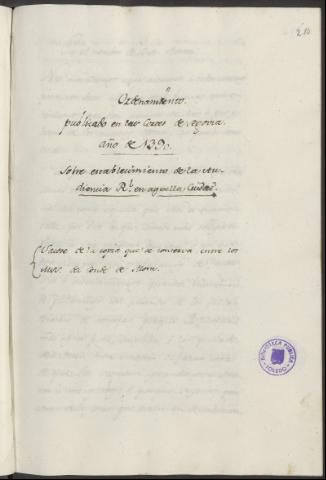 210
Ordenamiento
publicado en las Cortes de Segovia
año de 1390.
Sobre establecimiento de la Au-
diencia Rl. en aquella Ciudad.
Sacose de la copia que se conserva entre los
Mss. del Conde de Mora.
BIBLIOTECA PUBLICA
TOLEDO